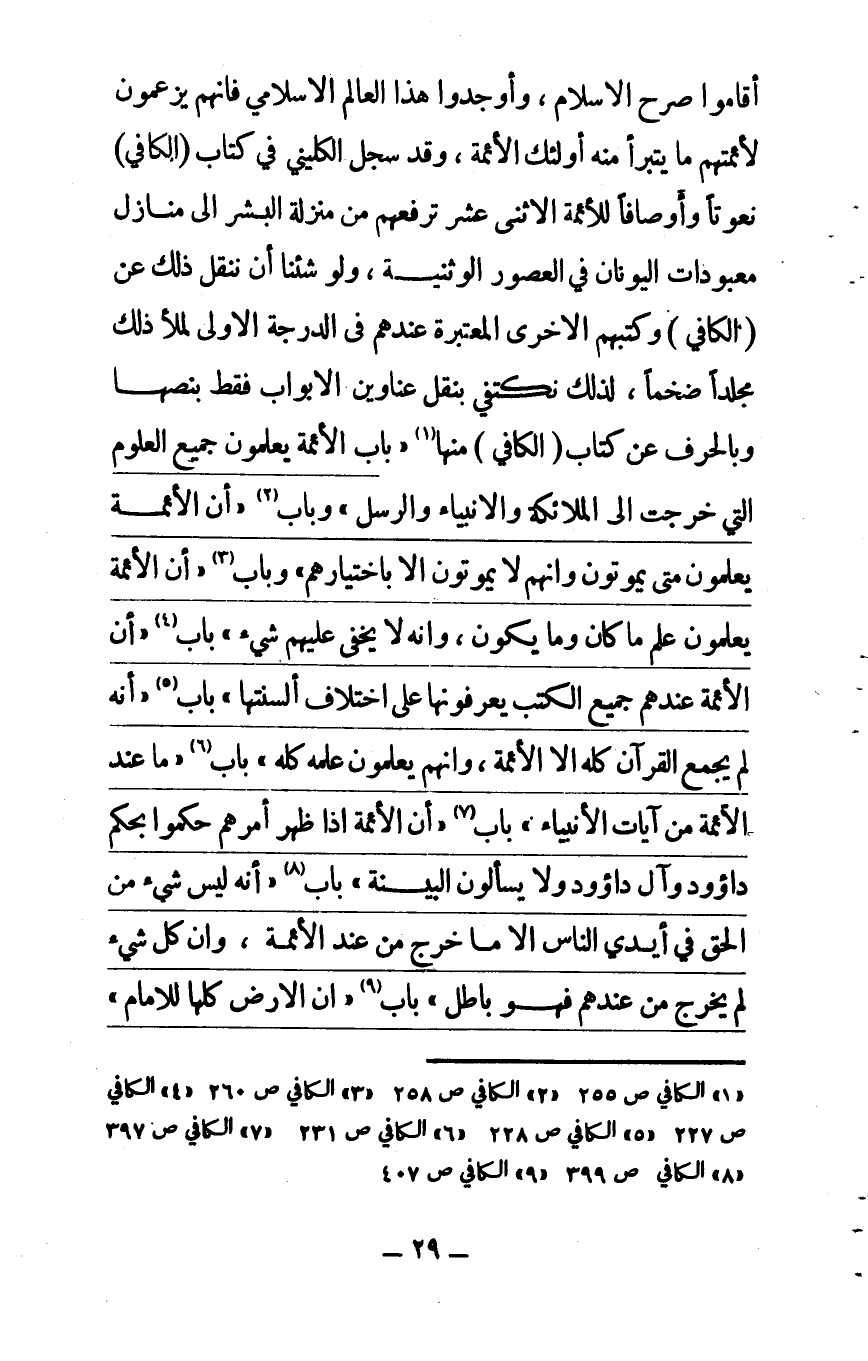 أقاموا صرح الاسلام ، وأوجدوا هذا العالم الاسلامي فانهم يزعمون
لأئمتهم ما يتبرأ منه أولئك الأئمة ، وقد سجل الكليني في كتاب (الكافي)
نعوتاً وأوصافاً للأئمة الاثنى عشر ترفعهم من منزلة البشر الى منازل
معبودات اليونان في العصور الوثنيـــة ، ولو شئنا أن ننقل ذلك عن
( الكافي ) وكتبهم الاخرى المعتبرة عندهم فى الدرجة الاولى لملأ ذلك
مجلداً ضخماً ، لذلك نكتفي بنقل عناوين الابواب فقط بنصهـــا
وبالحرف عن كتاب ( الكافي ) منها(١) « باب الأئمة يعلمون جميع العلوم
التي خرجت الى الملائكة والانبياء والرسل » وباب(٢) « أن الأئمـــة
يعلمون متى يموتون وانهم لا يموتون الا باختيارهم» وباب(٣) « أن الأئمة
يعلمون علم ما كان وما يكون ، وانه لا يخفى عليهم شيء » باب(٤) « أن
الأئمة عندهم جميع الكتب يعرفونها على اختلاف ألسنتها » باب(٥) « أنه
لم يجمع القرآن كله الا الأئمة ، وانهم يعلمون علمه كله » باب(٦) « ما عند
الأئمة من آيات الأنبياء » باب(٧) « أن الأئمة اذا ظهر أمرهم حكموا بحكم
داؤود وآل داؤود ولا يسألون البيـــنة » باب(٨) « أنه ليس شيء من
الحق في أيـدي الناس الا مـا خرج من عند الأئمـة ، وان كل شيء
لم يخرج من عندهم فهـــو باطل » باب(٩) « ان الارض كلها للامام »
«١» الكافي ص ٢٥٥ «٢» الكافي ص ٢٥٨ «٣» الكافي ص ٢٦٠ «٤» الكافي
ص ٢٢٧ «٥» الكافي ص ٢٢٨ «٦» الكافي ص ٢٣١ «٧» الكافي ص ٣٩٧
«٨» الكافي ص ٣٩٩ «٩» الكافي ص ٤٠٧
— ٢٩ —